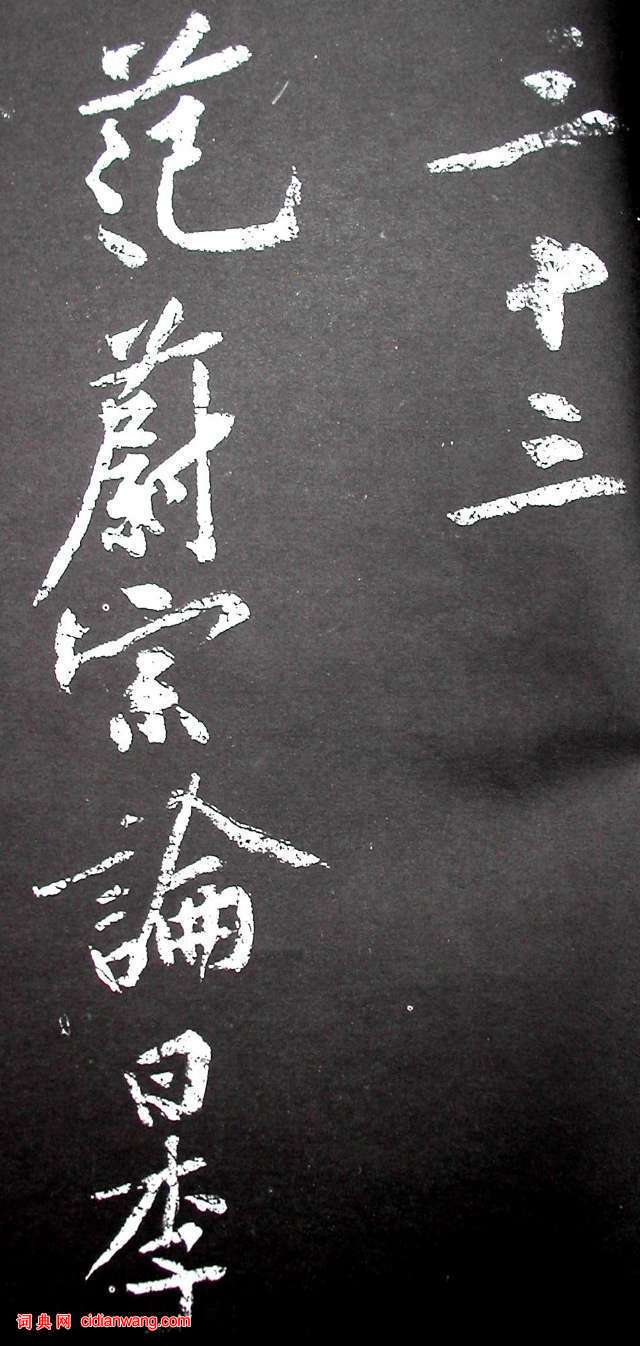 三十三
范蔚宗論曰李
词典网 cidianwang.com